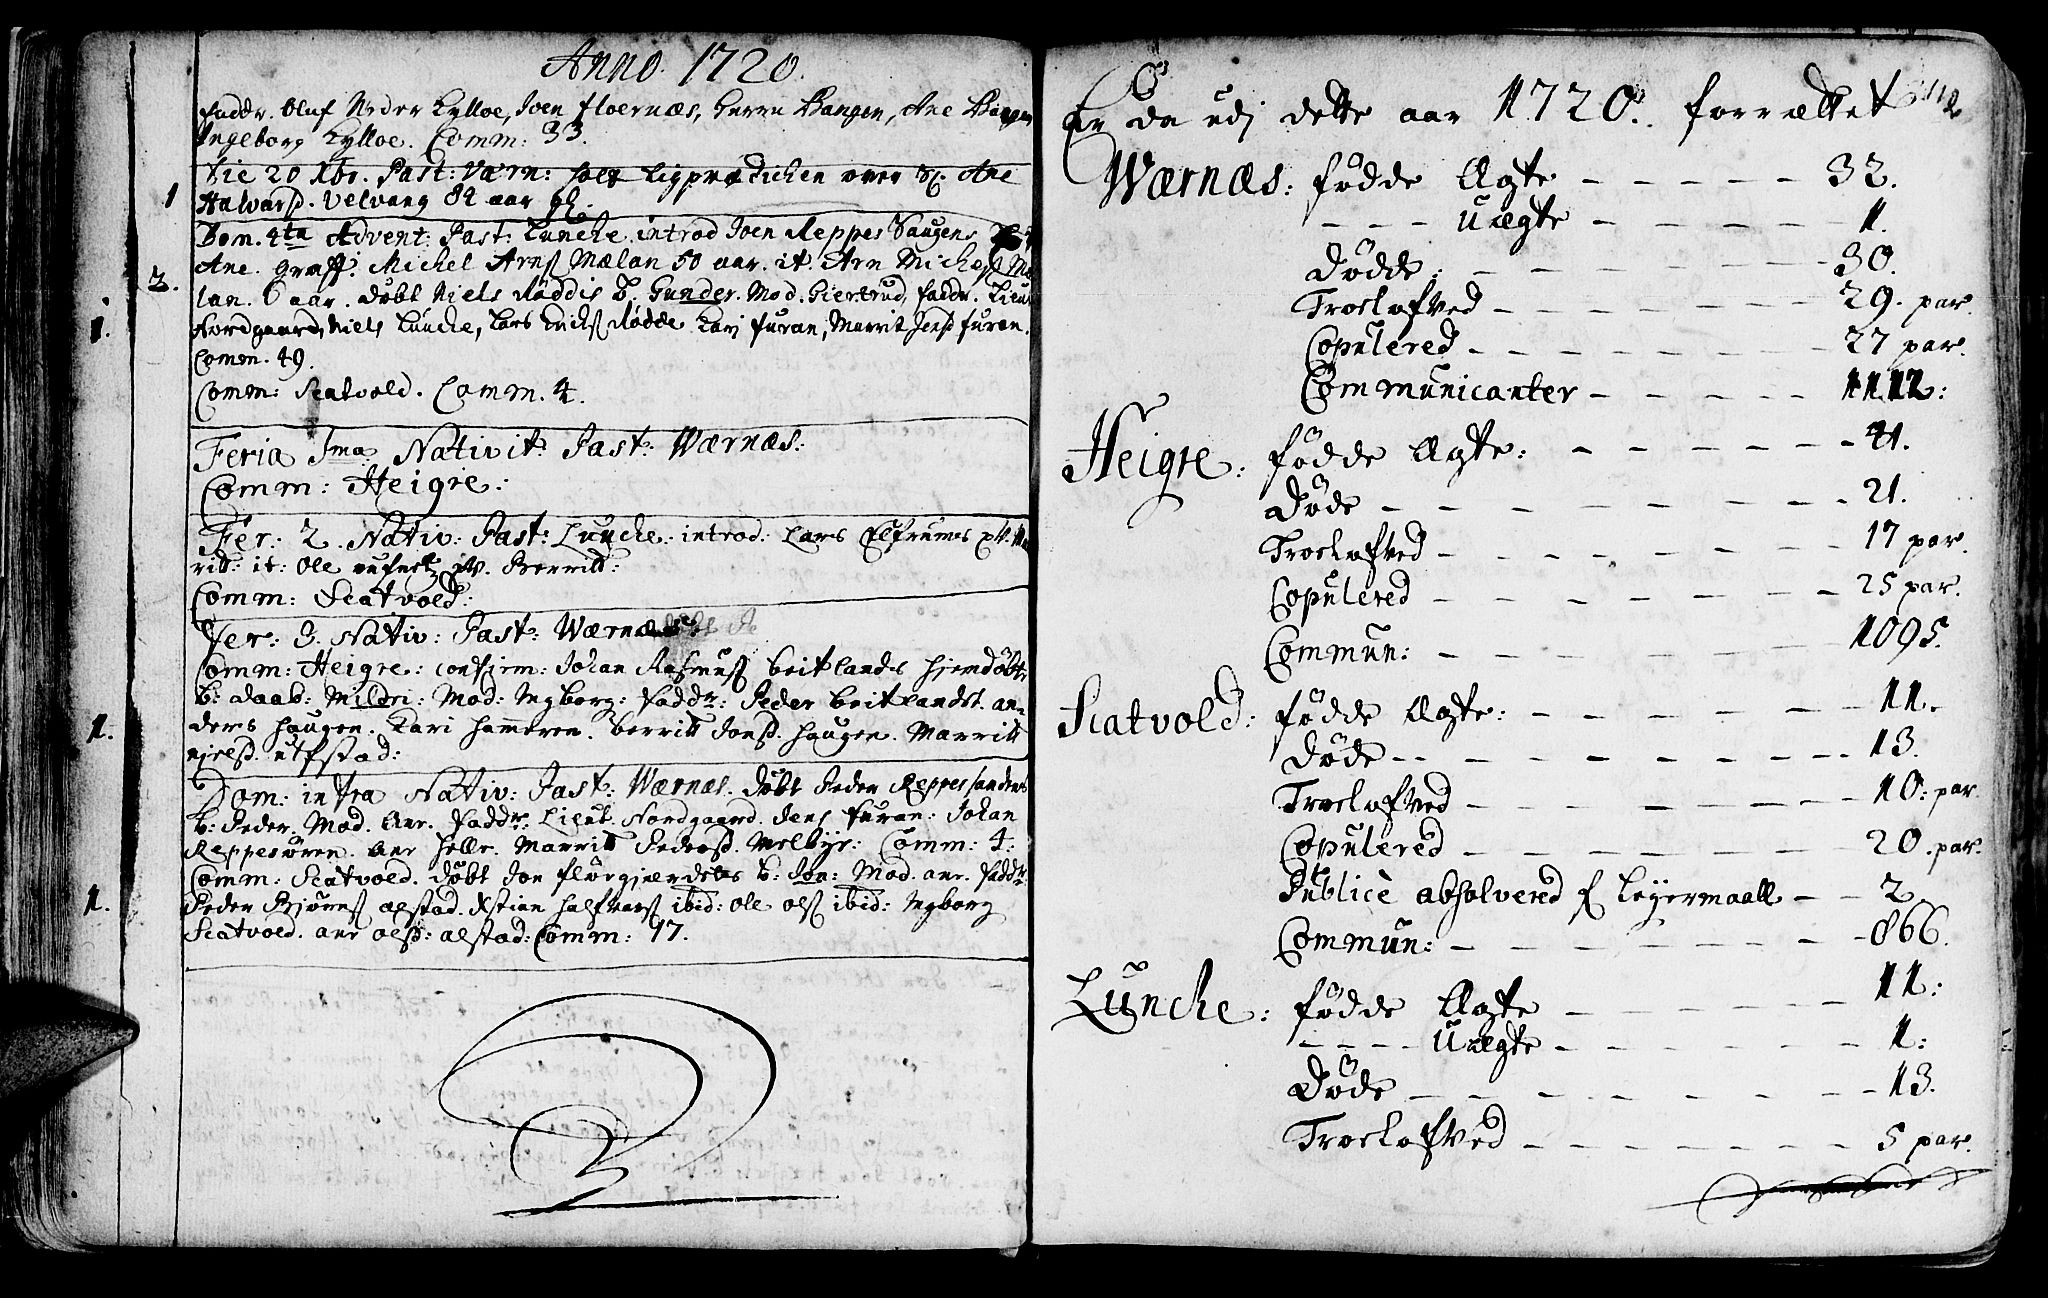 Anno. 1720.
Faddr. Oluf Neder Kylloe, Joen Floernæs, Bangen, Ane
Ingeborg Kylloe. Comm: 33.
Die 20 Xbr. Past: Værn: holt Ligprædichen over Ane
1 Halvarsd. Velvang 82 aar gl.
Dom. 4ta Advent. Past: Lunche introd Joen Reppes Haugens
2. Ane. Graff. Michel Arns Mælan 50 aar. it. Arn Michels Mæ
lan. 6 aar. døbt Niels Røddis B. Gunder. Mod. Giertrud, faddr. Lieut
1. Nordgaard, Niels Lunche, Lars Rødde Kari Furan, Marrit Jensd Furan.
Comm. 49.
Comm: Scatvold. Comm. 4.
Feria 1ma Nativit: Past: Wærnæs:
Comm: Heigre:
Fer: 2. Nativ: Past: Lunche: introd: Lars
rit: it: Ole Berritt:
Comm: Scatvold:
Fer: 3. Nativ: Past: Wærnæs
Comm: Heigre: confirm: Johan Rasmus beitlands hjemdøbt
b: daab: Mildri: Mod: Ingborg: Faddr: Peder beitlandst. an-
1. ders haugen. Kari hammeren. berritt Jonsd. haugen. Marritt
nielsd. utfstad:
Dom: intra Nativ: Past: Wærnæs. døbt Peder Reppes
b: Peder. Mod. Anr. Faddr: Lieut. Nordgaard. Jens Furan: Johan
Reppesøren. Anr Helle. Marritt Pedersd. Melbye: Comm: 4:
Comm: Scatvold. døbt Jon flørgjærdets b: Jon: Mod. anr. Faddr:
1. Peder Bjørns alstad. halfvars ibid: Ole ols ibid: Ingborg
Scatvold. anr olsd: alstad: Comm: 17.
Er da udj dette aar 1720. forrættet
Wærnæs: fødde Ægte - - - - - 32.
- - - uægte - - - - - 1.
Dødde: - - - - - - 30.
Troelofved - - - - - 29. par.
Copulered - - - - - 27 par.
Communicanter - - - - 1112:
Heigre: fødde Ægte: - - - - - 41.
Døde - - - - - - 21.
Troelofved - - - - - 17 par.
Copulered - - - - - 25 par.
Commun: - - - - - 1095.
Scatvold: fødde Ægte: - - - - - 11.
Døde - - - - - - 13.
Troelofved - - - - - 10: par.
Copulered - - - - - 20. par.
Publicè absolvered f Leyermaall - - 2.
Commun: - - - - - 866.
Lunche: fødde Ægte - - - - - 11:
- - - - Uægte - - - - - 1:
Døde - - - - - - 13.
Troelofved - - - - - 5 par.